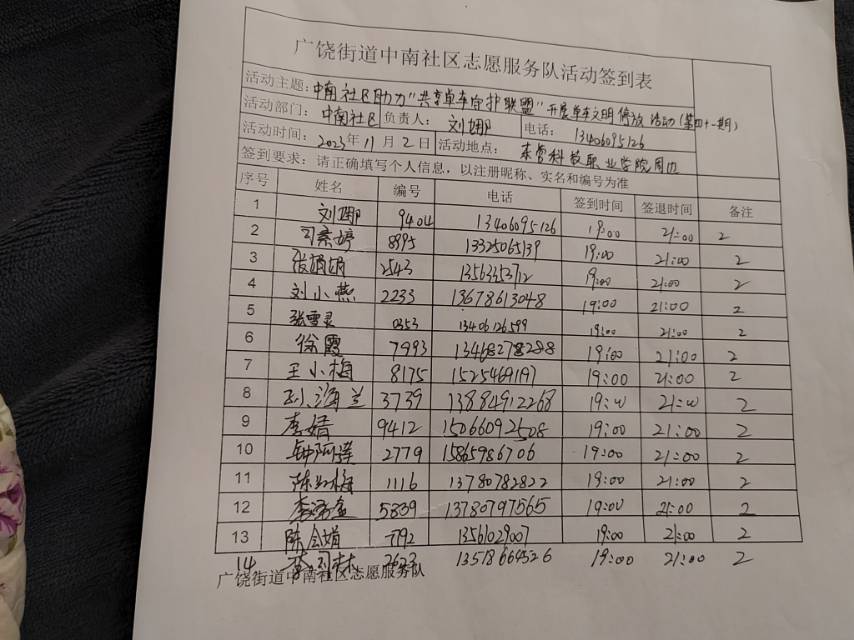 广饶街道中南社区志愿服务队活动签到表
活动主题: 中南社区助力"共享单车自护联盟"开展单车文明停放活动(第四十一期)
活动部门: 中南社区 负责人: 刘娜 电话: 13406095126
活动时间: 2023年11月2日 活动地点: 东营科技职业学院周边
签到要求: 请正确填写个人信息，以注册昵称、实名和编号为准
序号 姓名 编号 电话 签到时间 签退时间 备注
1 刘娜 9404 13406095126 19:00 21:00 2
2 司素婷 8895 13325065139 19:00 21:00 2
3 张娟娟 2543 19:00 21:00 2
4 刘小燕 2233 13678613048 19:00 21:00 2
5 张雪灵 0353 13406126599 19:00 21:00 2
6 徐霞 7993 13468278288 19:00 21:00 2
7 王小梅 8175 15254691197 19:00 21:00 2
8 孙海兰 3739 13884912268 19:00 21:00 2
9 李婧 9412 15066092508 19:00 21:00 2
10 2779 15865986706 19:00 21:00 2
11 1116 13780782822 19:00 21:00 2
12 5839 13780797565 19:00 21:00 2
13 陈会娟 7792 13561029007 19:00 21:00 2
14 13518664526 19:00 21:00 2
广饶街道中南社区志愿服务队